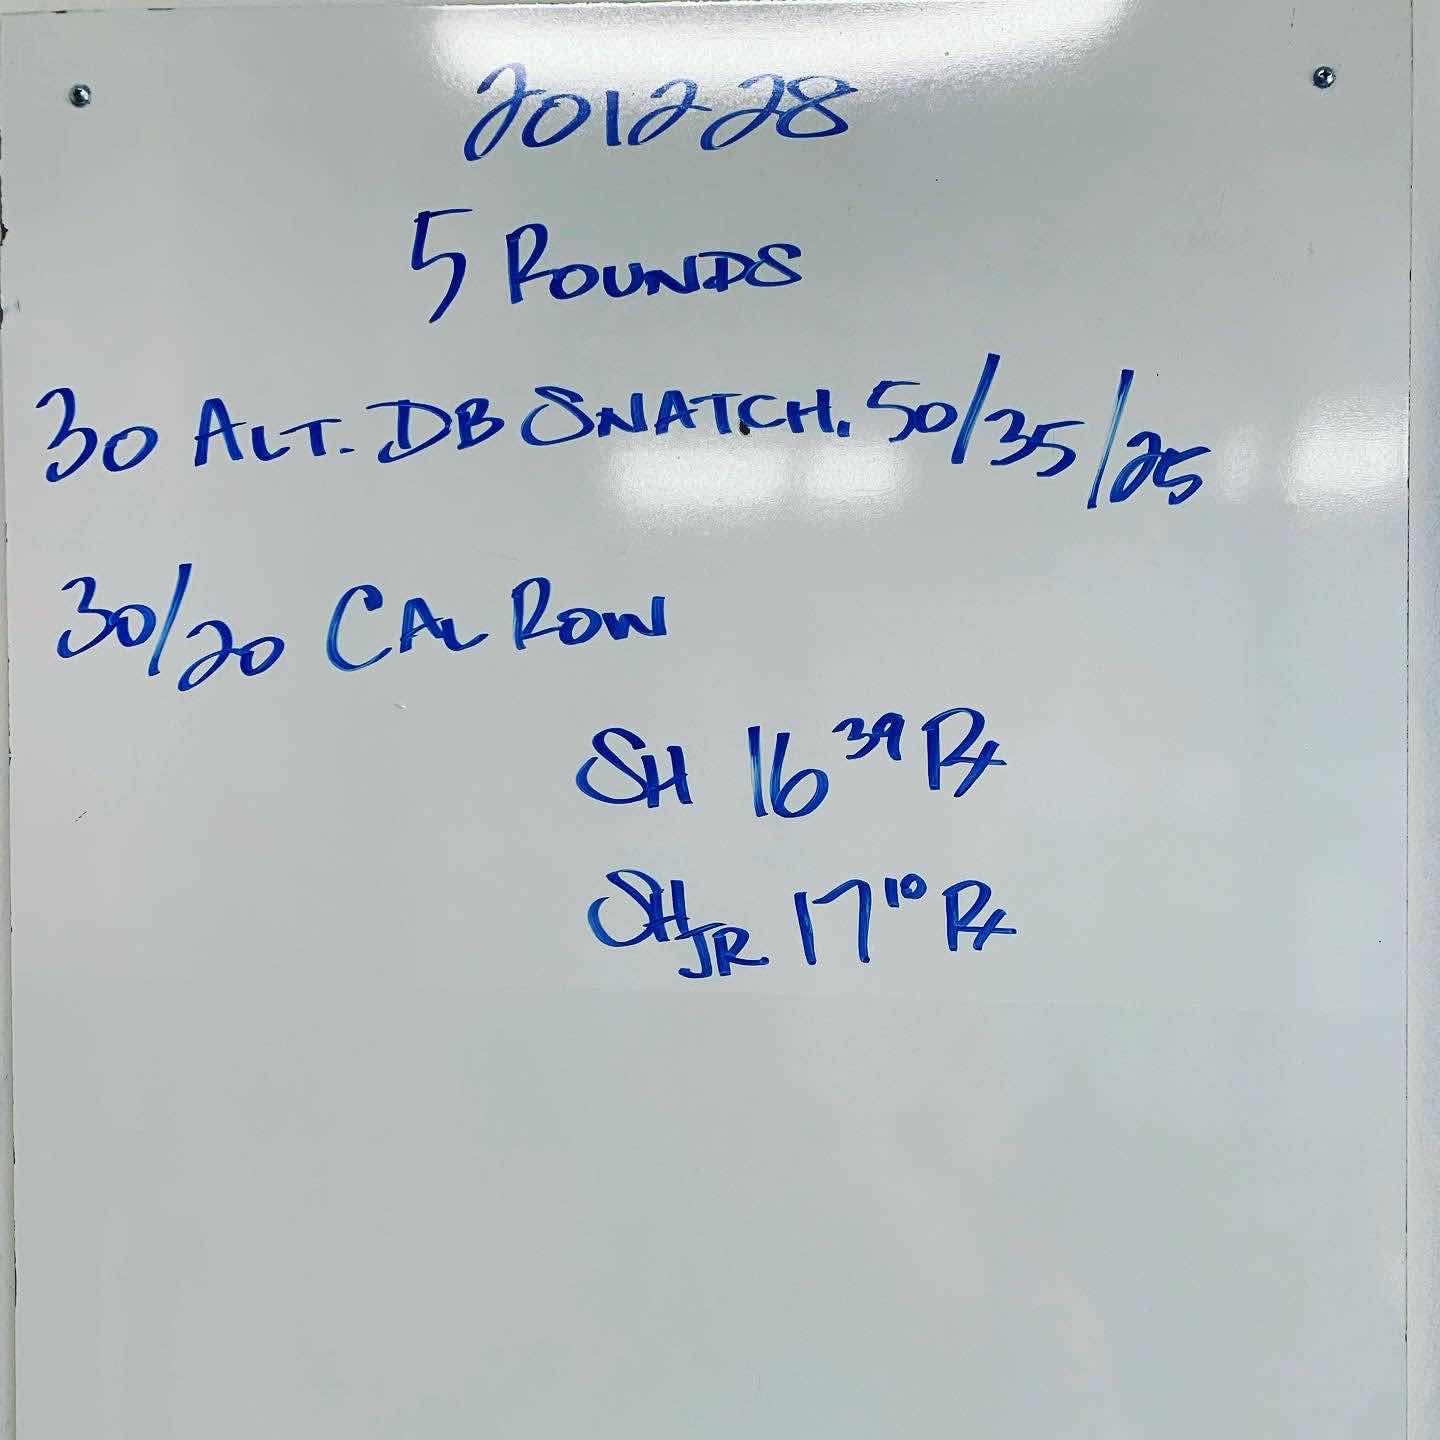 201228
5 ROUNDS
30 ALT. DB SNATCH. 50/35/25
30/20 CAL ROW
SH 16 39 Rx
SH JR 17 10 Rx